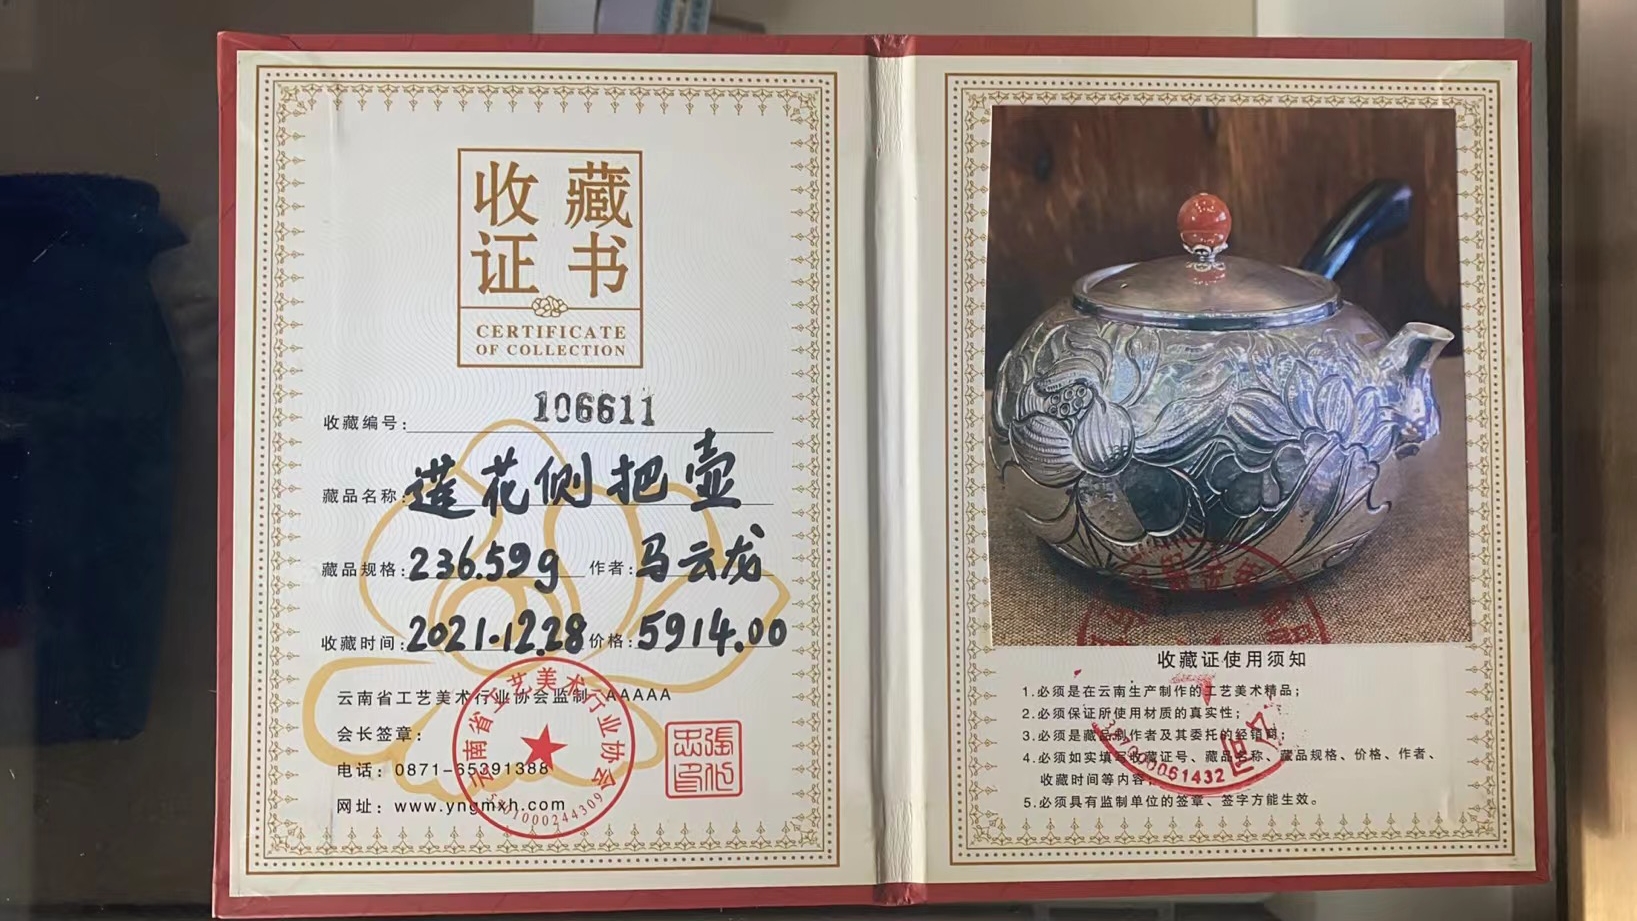 收藏
证书
CERTIFICATE
OF COLLECTION
收藏编号: 106611
藏品名称: 莲花侧把壶
藏品规格: 236.59g 作者: 马云龙
收藏时间: 2021.12.28 价格: 5914.00
云南省工艺美术行业协会监制 AAAAA
会长签章:
电话: 0871-65391388
网址: www.yngmxh.com
云南省工艺美术行业协会
收藏证使用须知
1.必须是在云南生产制作的工艺美术精品;
2.必须保证所使用材质的真实性;
3.必须是藏品制作者及其委托的经销商;
4.必须如实填写收藏证号、藏品名称、藏品规格、价格、作者、
收藏时间等内容;
5.必须具有监制单位的签章、签字方能生效。